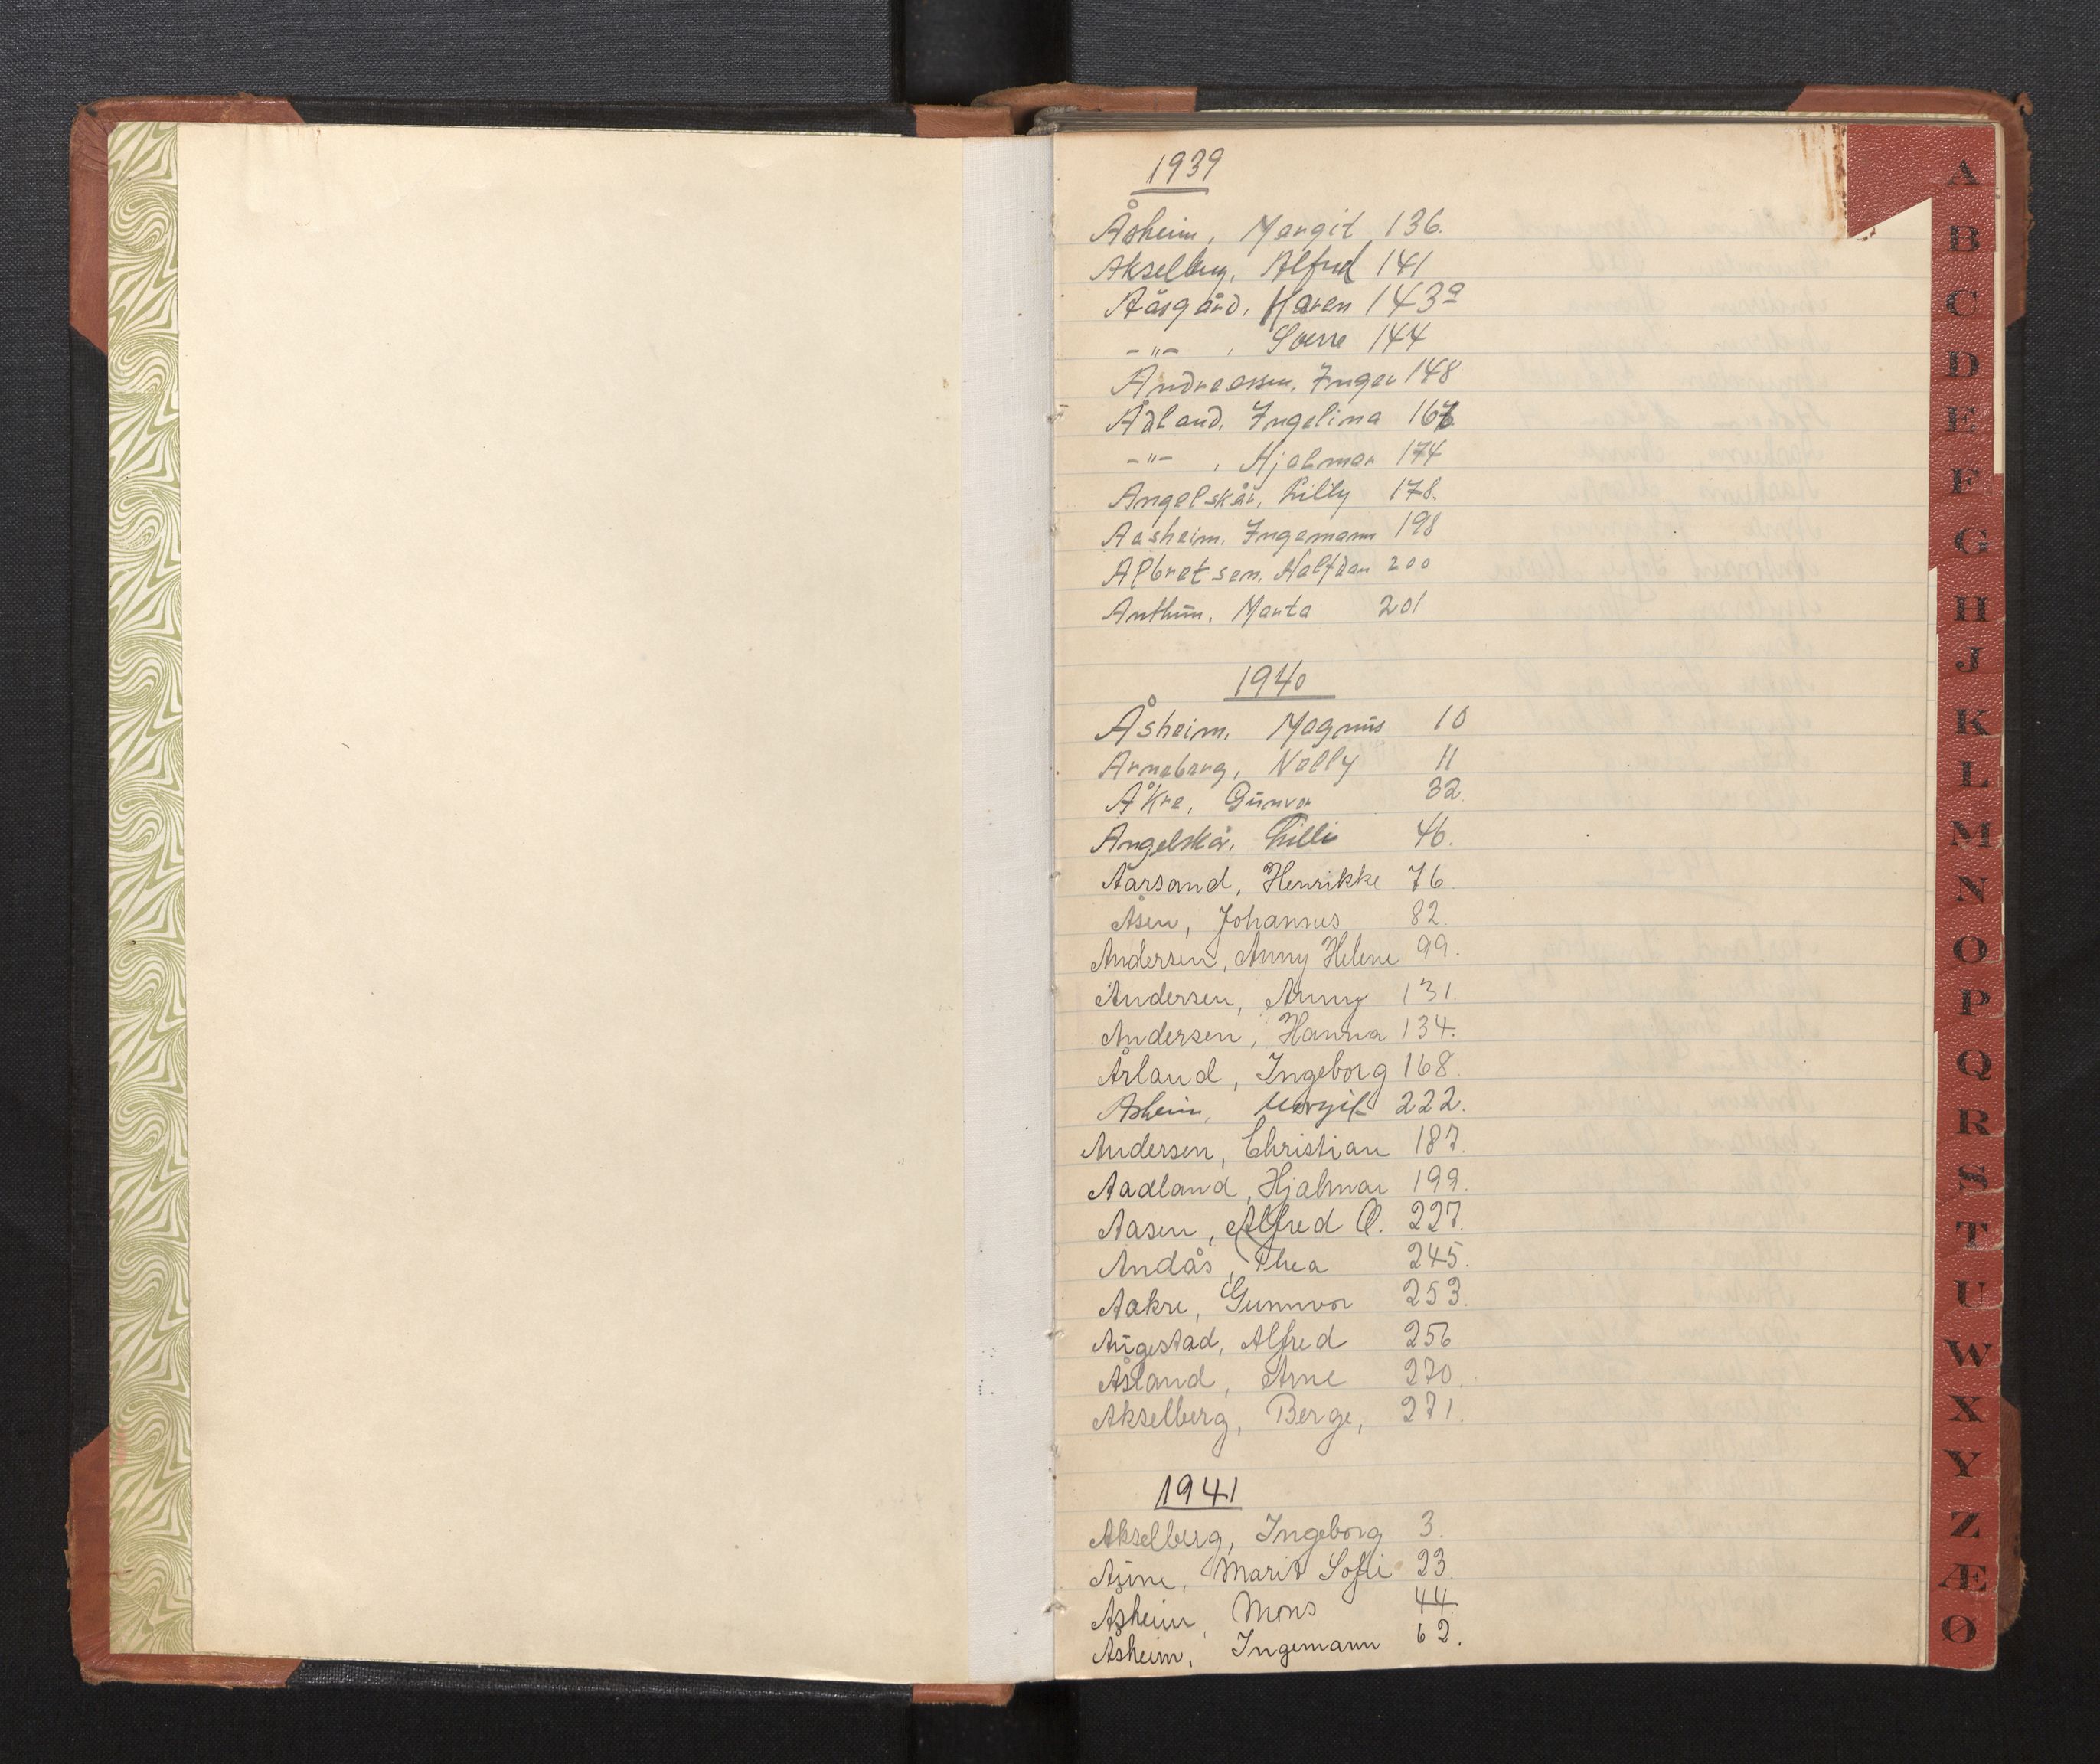 1939
Åsheim, Margit 136.
Akselberg, Alfred 141
Aåsgård, Karen 143a
-"- , Sverre 144
Andreassen, Inger 148
Ådland, Ingelina 167
-"- , Hjalmar 174
Angelskår, Lilly 178.
Aasheim, Ingemann 198
Albretsen, Halfdan 200
Anthun, Marta 201
1940
Åsheim, Magnus 10
Arneberg, Nelly 11
Åkre, Gunvor 32.
Angelskår, Lilli 46.
Aarsand, Henrikke 76.
Åsen, Johannes 82.
Andersen, Anny Helene 99.
Andersen, Anny 131.
Andersen, Hanna 134.
Årland, Ingeborg 168.
Åsheim, Margit 222.
Andersen, Christian 187.
Aadland, Hjalmar 199.
Aasen, Alfred O. 227.
Andås, Thea 245.
Aakre, Gunnvor 253.
Augestad, Alfred 256
Åsland, Arne 270.
Akselberg, Berge, 271.
1941
Akselberg, Ingeborg 3.
Aune, Marit Sofie 23.
Åsheim, Mons 44.
Åsheim, Ingemann 62.
A
B
C
D
E
F
G
H
J
K
L
M
N
O
P
Q
R
S
T
U
W
X
Y
Z
Æ
Ø